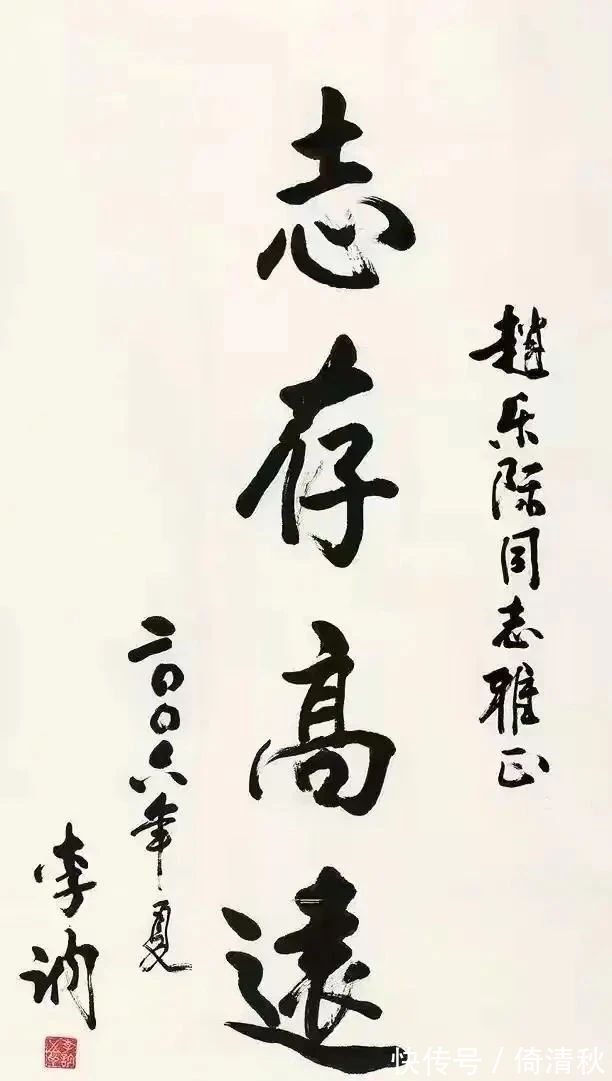 趙乐际同志雅正
志存高遠
二〇〇六年夏
李讷
快传号 / 倚清秋